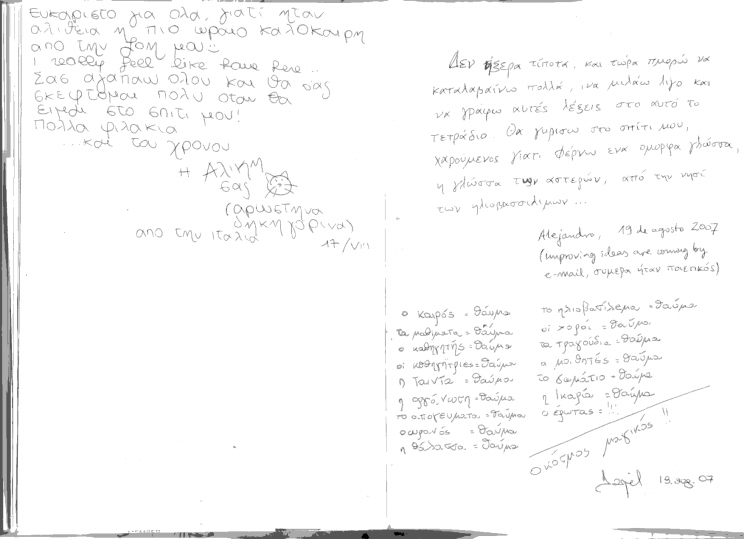 Ευκαριστο για ολα, γιατί ηταν
αλιθεια η πιο ωραιο καλοκαιρη
απο την ζοη μου
I really feel like Rave Rere...
Σας αγαπαω ολου και θα σας
σκεφτομαι πολυ οταν θα
Ειμαι στο σπιτι μου!
Πολλα φιλακια
...και του χρονου
η Αλινη
σας
(αρωστηνα
δηκηγορινα)
απο την ιταλια 17/VIII
Δεν ήξερα τίποτα, και τώρα μπορώ να
καταλαβαίνω πολλά, ινα μιλάω λιγο και
να γραφω αυτές λέξεις στο αυτό το
τετράδιο. Θα γυρισω στο σπίτι μου,
χαρούμενος γιατι φέρνω ενα ομορφα γλώσσα,
η γλώσσα των αστερών, από την νησί
των ηλιοβασσιλιμων...
Alejandro, 19 de agosto 2007
(improving ideas are coming by
e-mail, συμερα ήταν ποιετικός)
ο καιρός = θαύμα
τα μαθματα = θαύμα
ο καθηγητής = θαύμα
οι καθηγήτριες = θαύμα
η ταιντα = θαύμα
η θαύμα
το απογευματα = θαύμα
ο ουρανός = θαύμα
η θάλασσα = θαύμα
το ηλιοβατίλεμα = θαύμα
οι χοροί = θαύμα
τα τραγούδια = θαύμα
ο μαθητές = θαύμα
το σωμάτιο = θαύμα
η Ικαρία = θαύμα
ο έρωτας = !!!
Ο κόσμος μαγικός !!
19. 07